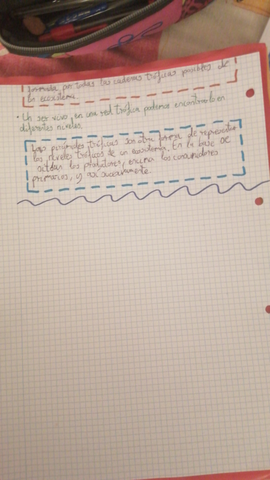 formada por todas las cadenas tróficas posibles de
un ecosistema.
• Un ser vivo, en una red trófica podemos encontrarlo en
diferentes niveles.
Las pirámides tróficas son otra forma de representar
los niveles tróficos de un ecosistema. En la base se
sitúan los productores, encima los consumidores
primarios, y así sucesivamente.